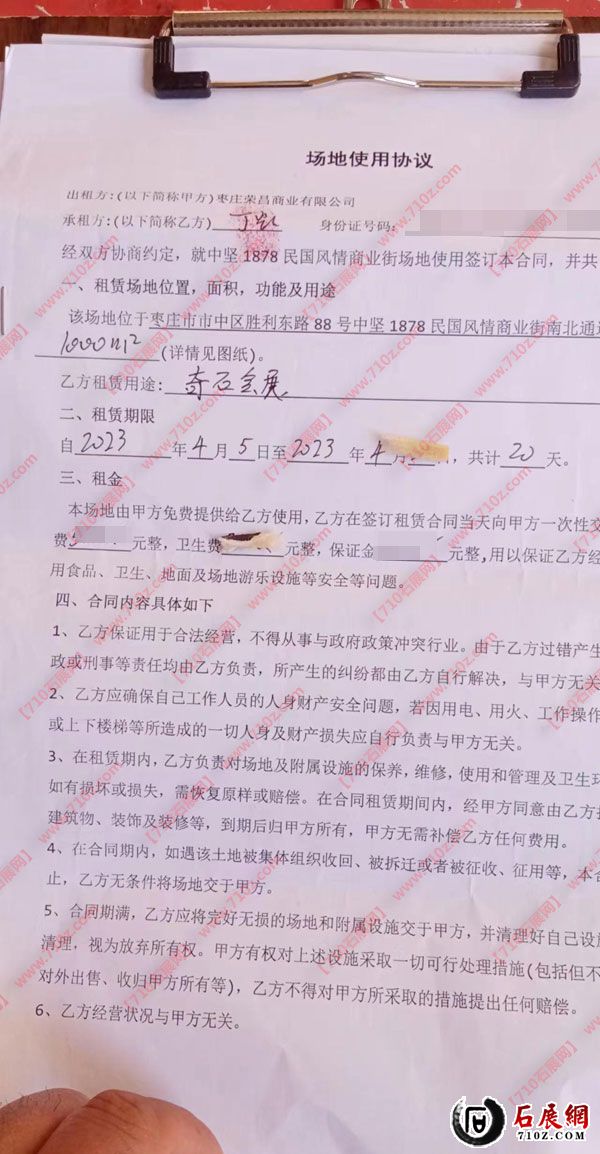 场地使用协议
出租方:(以下简称甲方)枣庄荣昌商业有限公司
承租方:(以下简称乙方) 身份证号码:
经双方协商约定，就中坚1878民国风情商业街场地使用签订本合同，并共
一、租赁场地位置，面积，功能及用途
该场地位于枣庄市市中区胜利东路88号中坚1878民国风情商业街南北通道
1000m²(详情见图纸)。
乙方租赁用途：奇石会展
二、租赁期限
自2023年4月5日至2023年4月 日，共计20天。
三、租金
本场地由甲方免费提供给乙方使用，乙方在签订租赁合同当天向甲方一次性交
费 元整，卫生费 元整，保证金 元整,用以保证乙方经
用食品、卫生、地面及场地游乐设施等安全等问题。
四、合同内容具体如下
1、乙方保证用于合法经营，不得从事与政府政策冲突行业。由于乙方过错产生
政或刑事等责任均由乙方负责，所产生的纠纷都由乙方自行解决，与甲方无关
2、乙方应确保自己工作人员的人身财产安全问题，若因用电、用火、工作操作
或上下楼梯等所造成的一切人身及财产损失应自行负责与甲方无关。
3、在租赁期内，乙方负责对场地及附属设施的保养，维修，使用和管理及卫生环
如有损坏或损失，需恢复原样或赔偿。在合同租赁期间内，经甲方同意由乙方
建筑物、装饰及装修等，到期后归甲方所有，甲方无需补偿乙方任何费用。
4、在合同期内，如遇该土地被集体组织收回、被拆迁或者被征收、征用等，本合
止，乙方无条件将场地交于甲方。
5、合同期满，乙方应将完好无损的场地和附属设施交于甲方，并清理好自己设施
清理，视为放弃所有权。甲方有权对上述设施采取一切可行处理措施(包括但不
对外出售、收归甲方所有等)，乙方不得对甲方所采取的措施提出任何赔偿。
6、乙方经营状况与甲方无关。
【710石展网】www.710z.com
石展網
710Z.COM